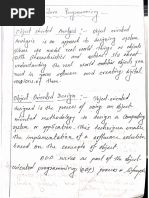 Programming
Object oriented Analysis :- Object oriented
Analysis is an approach to designing system
where we model real world things as objects
with characteristics and
understanding the real world entities object you
need in your software and creating digital
versions of them.
Object Oriented Design :- Object-oriented
designed is the process of using an object-
oriented methodology in design a computing
system or application, this technique enable
the implementation of a software solution
based on the concepts of object.
OOD works as part of the object
oriented programming (OOP) process or